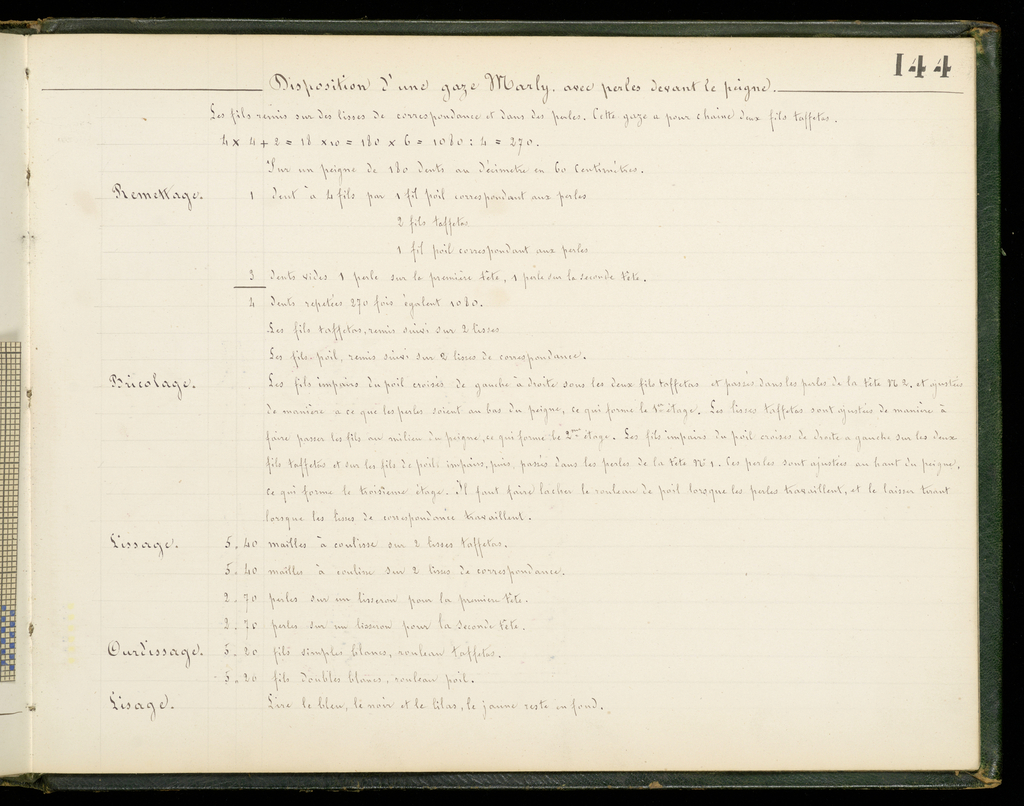 144
Disposition d'une gaze Marly, avec perles devant le peigne.
Les fils remis sur des lisses de correspondance et dans des perles. Cette gaze a pour chaine deux fils taffetas.
4 x 4 + 2 = 18 x 10 = 180 x 6 = 1080 : 4 = 270.
Sur un peigne de 180 dents au décimetre en 60 centimètres.
Remettage. 1 dent à 4 fils par 1 fil poil correspondant aux perles
2 fils taffetas
1 fil poil correspondant aux perles
3 dents vides 1 perle sur la première tête, 1 perle sur la seconde tête.
4 dents repetées 270 fois égalent 1080.
Les fils taffetas, remis suivi sur 2 lisses
Les fils poil, remis suivi sur 2 lisses de correspondance.
Bricolage. Les fils impairs du poil croisés de gauche à droite sous les deux fils taffetas et passés dans les perles de la tête N 2, et ajustés
de manière a ce que les perles soient au bas du peigne, ce qui forme le 1er étage. Les lisses taffetas sont ajustées de manière à
faire passer les fils au milieu du peigne, ce qui forme le 2me étage. Les fils impairs du poil croises de droite a gauche sur les deux
fils taffetas et sur les fils de poil impairs, puis, passés dans les perles de la tête N° 1. Ces perles sont ajustées au haut du peigne,
ce qui forme le troisième étage. Il faut faire lacher le rouleau de poil lorsque les perles travaillent, et le laisser tirant
lorsque les lisses de correspondance travaillent.
Lissage. 5.40 mailles à coulisse sur 2 lisses taffetas.
5.40 mailles à coulisse sur 2 lisses de correspondance.
2.70 perles sur un lisseron pour la premiere tête.
2.70 perles sur un lisseron pour la seconde tête.
Ourdissage. 5.20 fils simples blancs, rouleau taffetas.
5.20 fils doubles blancs, rouleau poil.
Lisage. Lire le bleu, le noir et le lilas, le jaune reste en fond.